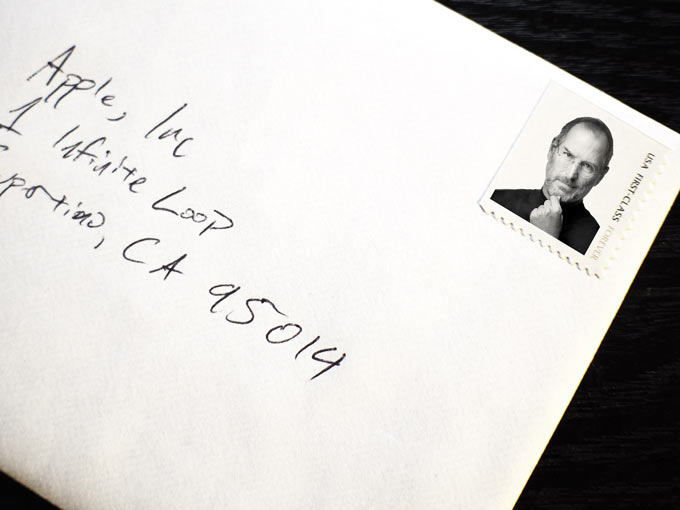 Apple, Inc
1 Infinite Loop
Cupertino, CA 95014
USA FIRST-CLASS FOREVER